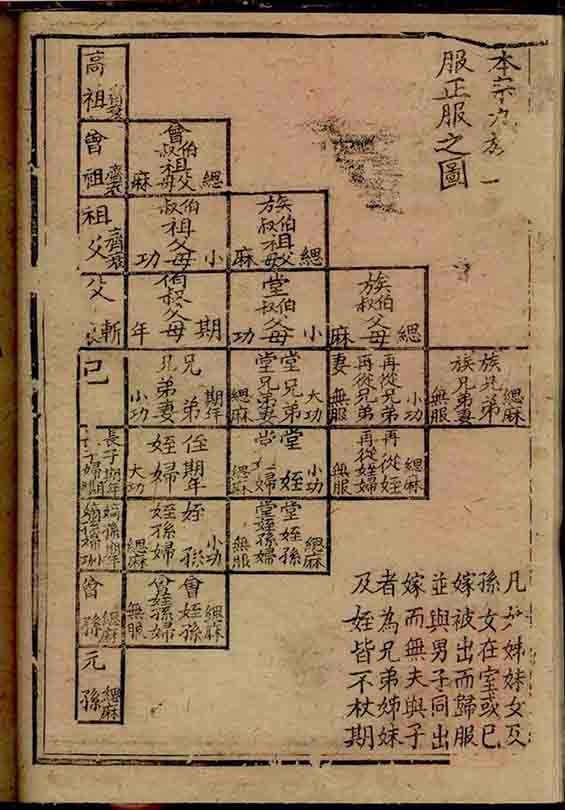 本宗九族
服正服之圖
高祖
曾祖
齊衰
曾伯叔祖父母
緦麻
祖父
齊衰
伯叔祖父母
小功
族伯叔祖父母
緦麻
父
斬
伯叔父母
期年
堂伯叔父母
小功
族伯叔父母
緦麻
己
兄弟
期年
兄弟妻
小功
堂兄弟
大功
堂兄弟妻
緦麻
再從兄弟
小功
再從兄弟妻
無服
族兄弟
緦麻
族兄弟妻
無服
長子期年
長子婦期
侄期年
姪婦
大功
堂姪
小功
堂婦
緦麻
再從姪
緦麻
再從姪婦
無服
嫡孫期年
嫡孫婦小功
姪孫
小功
姪孫婦
緦麻
堂姪孫
緦麻
堂姪孫婦
無服
曾孫
緦麻
曾姪孫
緦麻
曾姪孫婦
無服
元孫
緦麻
凡姑姊妹女及
孫女在室或已
嫁被出而歸服
並與男子同出
嫁而無夫與子
者為兄弟姊妹
及姪皆不杖期